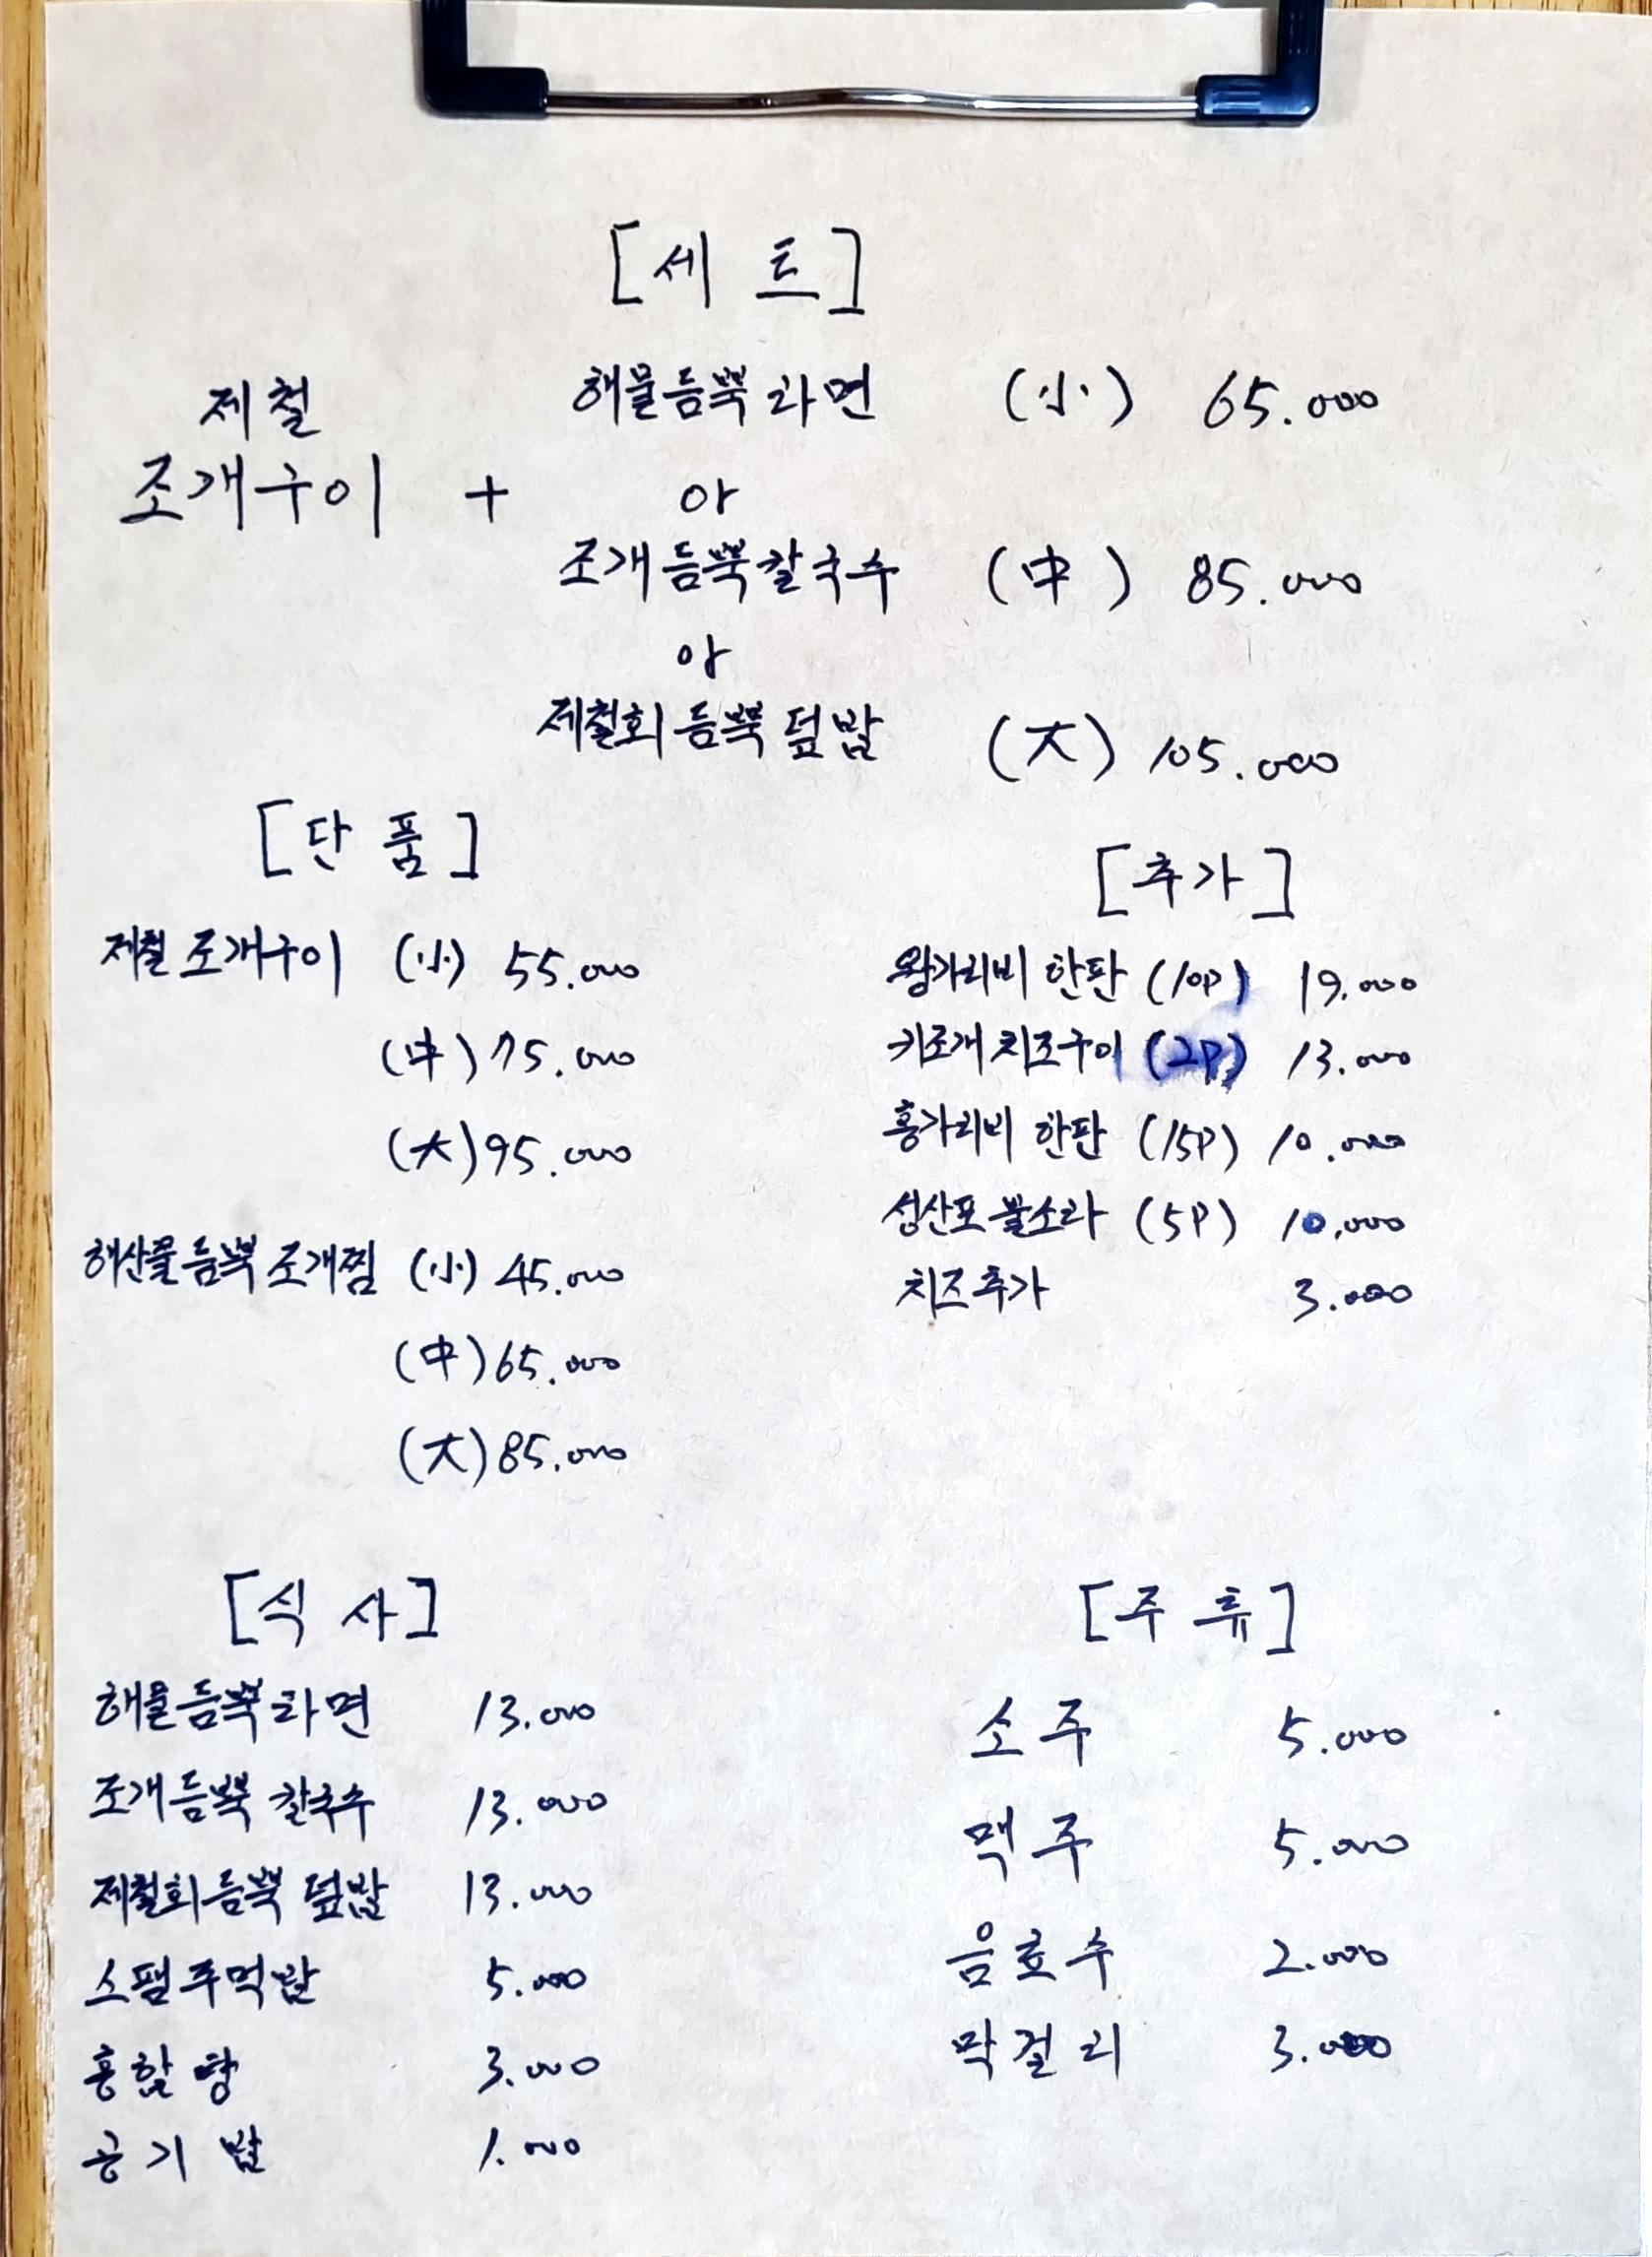 [세 트]
제철 해물듬뿍라면 (小) 65.000
조개구이 + or
조개듬뿍칼국수 (中) 85.000
or
제철회듬뿍덮밥 (大) 105.000
[단 품]
제철 조개구이 (小) 55.000
(中) 75.000
(大) 95.000
해산물듬뿍 조개찜 (小) 45.000
(中) 65.000
(大) 85.000
[추가]
왕가리비 한판 (10P) 19.000
키조개 치즈구이 (2P) 13.000
홍가리비 한판 (15P) 10.000
성산포 뿔소라 (5P) 10.000
치즈추가 3.000
[식 사]
해물듬뿍라면 13.000
조개듬뿍 칼국수 13.000
제철회듬뿍 덮밥 13.000
스팸주먹밥 5.000
홍합탕 3.000
공기밥 1.000
[주 류]
소주 5.000
맥주 5.000
음료수 2.000
막걸리 3.000